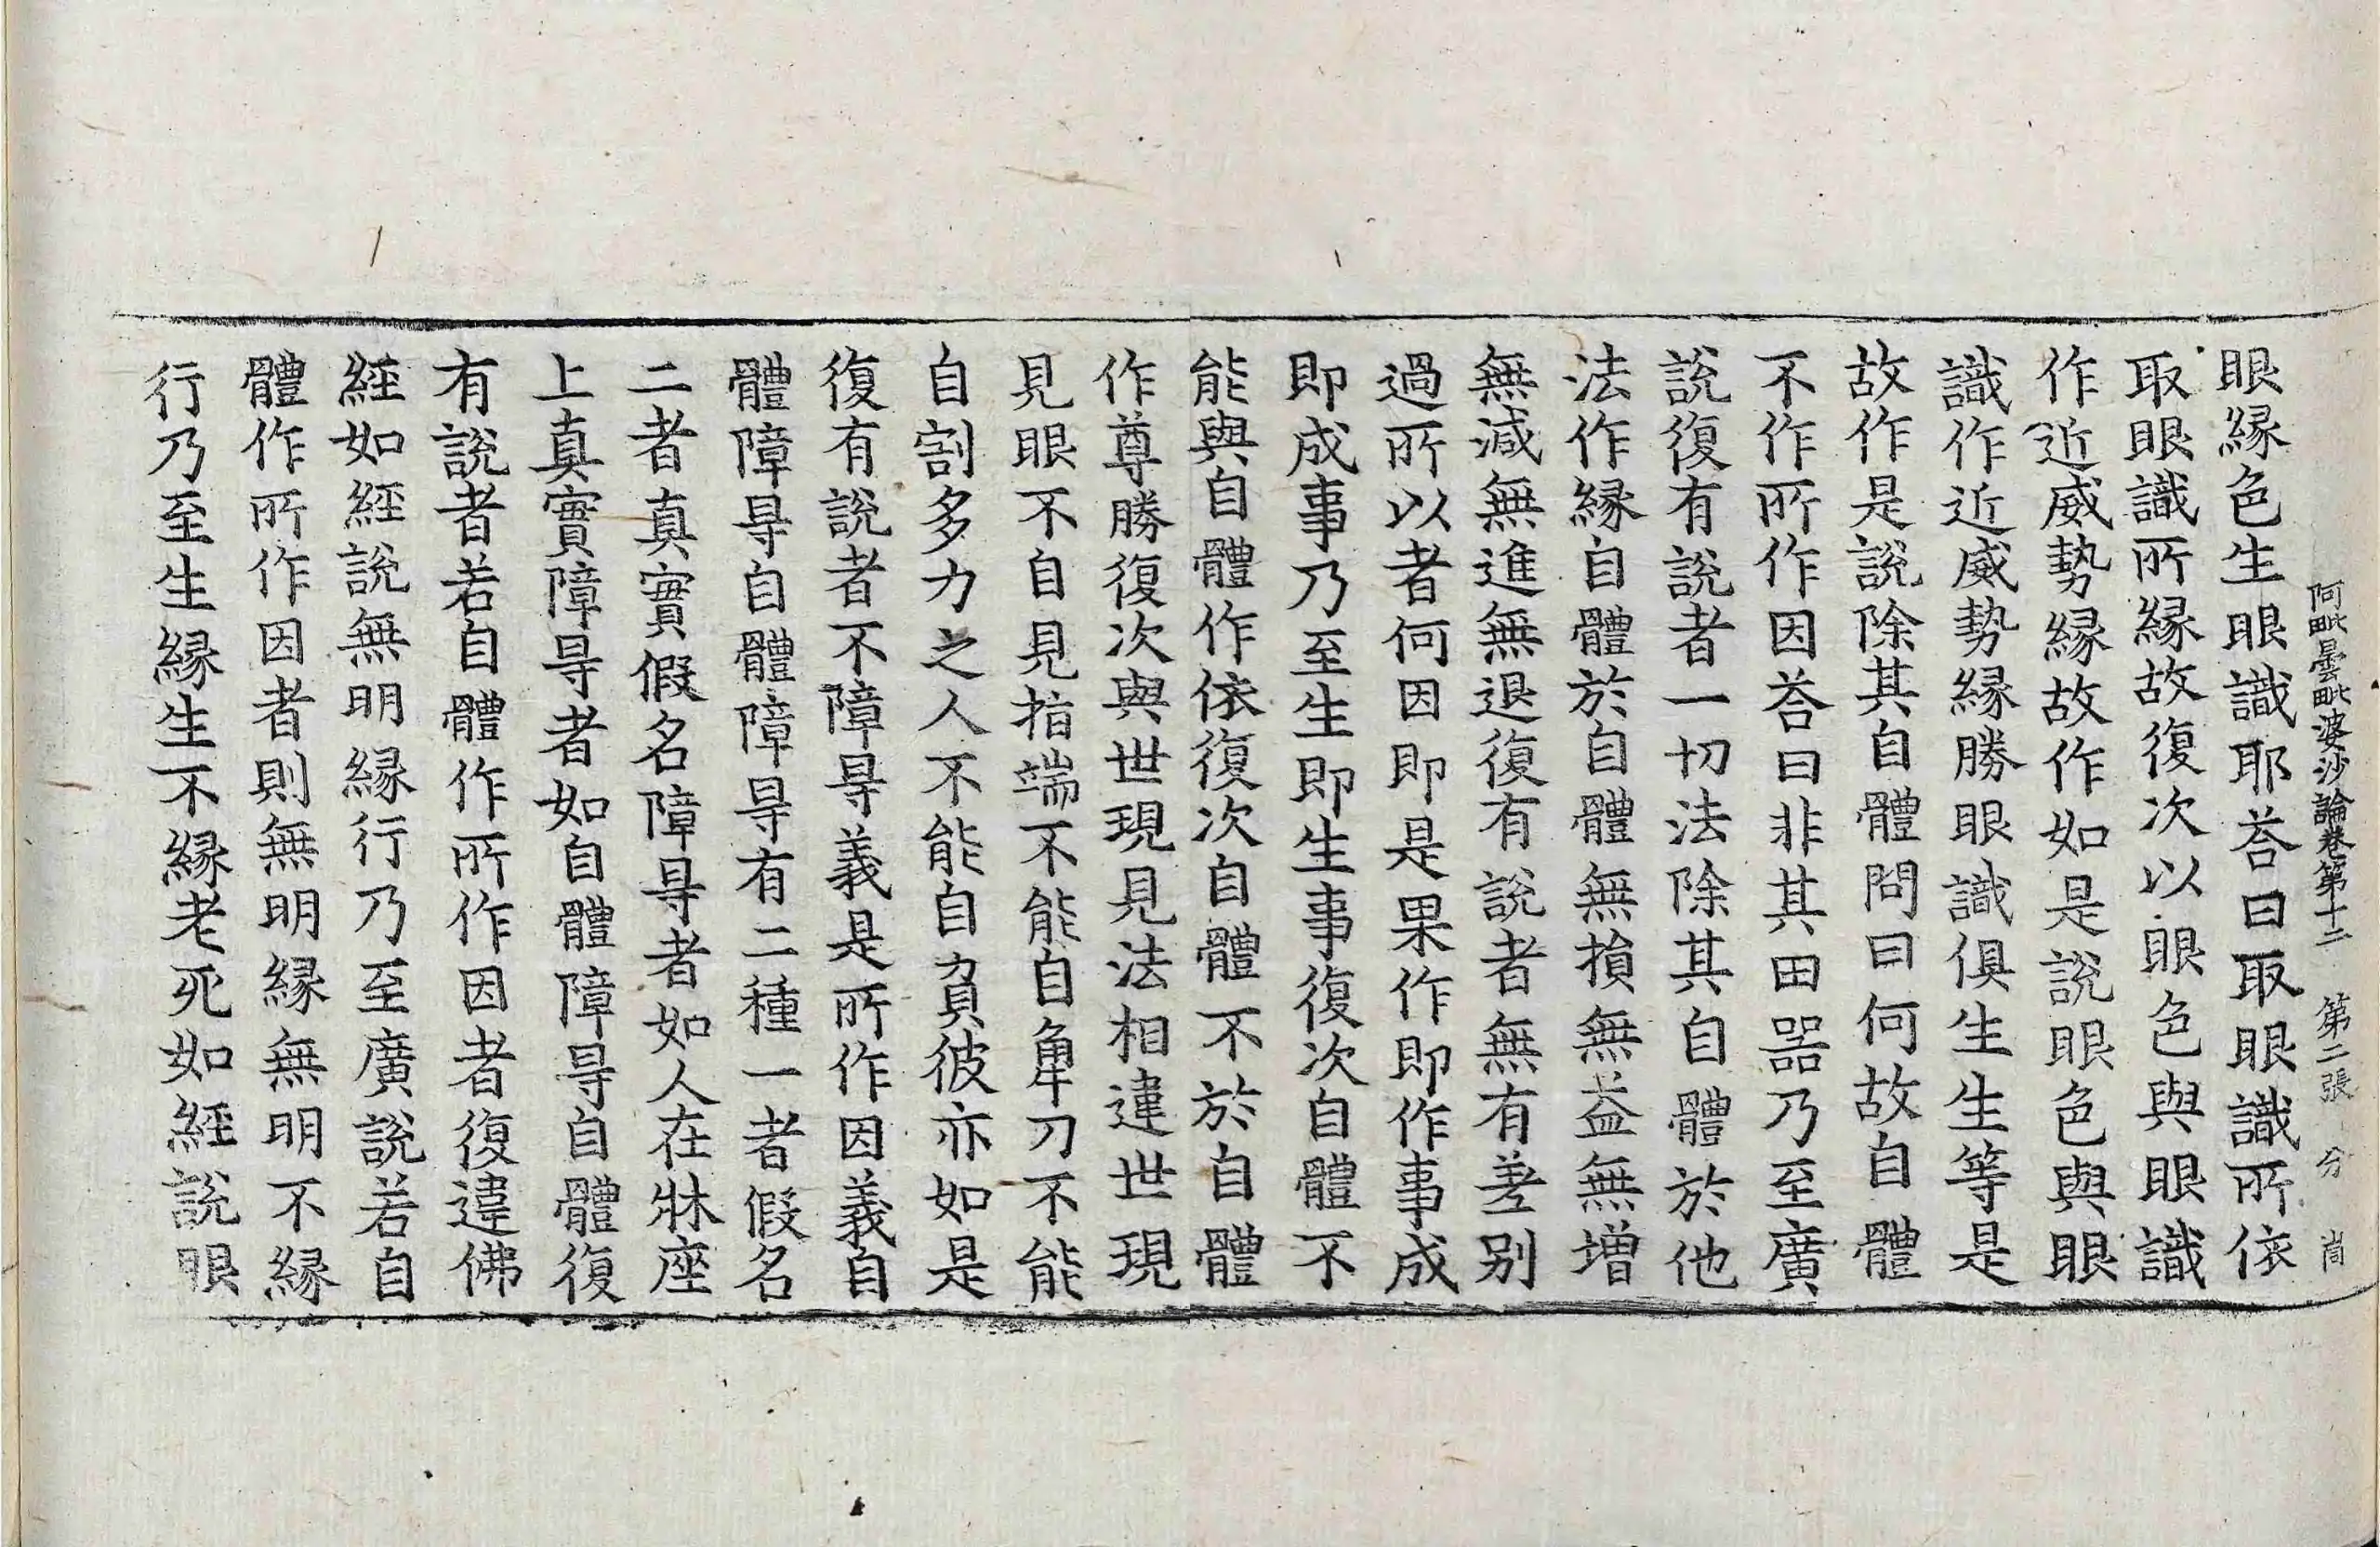 阿毗曇毗婆沙論卷第十二 第二張 分 崗
眼緣色生眼識耶荅曰取眼識所依
取眼識所緣故復次以眼色與眼識
作近威勢緣故作如是說眼色與眼
識作近威勢緣勝眼識俱生生等是
故作是說除其自體問曰何故自體
不作所作因荅曰非其田器乃至廣
說復有說者一切法除其自體於他
法作緣自體於自體無損無益無增
無減無進無退復有說者無有差別
過所以者何因即是果作即作事成
即成事乃至生即生事復次自體不
能與自體作依復次自體不於自體
作尊勝復次與世現見法相違世現
見眼不自見指端不能自觸刀不能
自割多力之人不能自負彼亦如是
復有說者不障㝵義是所作因義自
體障㝵自體障㝵有二種一者假名
二者真實假名障㝵者如人在牀座
上真實障㝵者如自體障㝵自體復
有說者若自體作所作因者復違佛
經如經說無明緣行乃至廣說若自
體作所作因者則無明緣無明不緣
行乃至生緣生不緣老死如經說眼